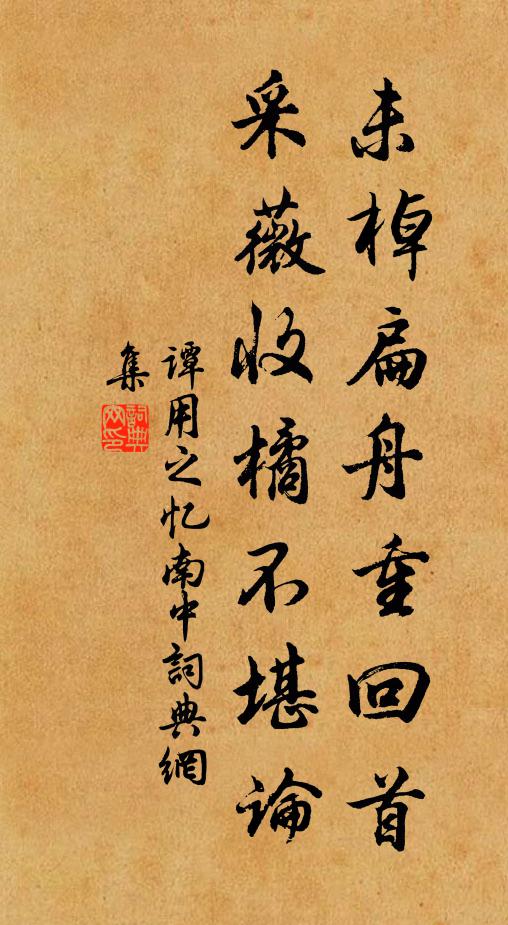 未棹扁舟重回首
采薇收橘不堪論
谭用之忆南中詞典網
集
詞典
网印